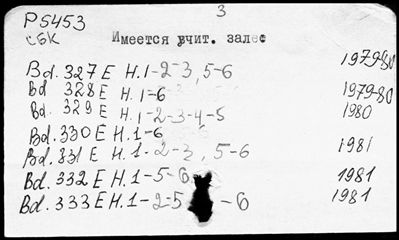 3
P5453
СБК
Имеется учит. залео
Bd. 327 E H.1-2-3, 5-6 1979-80
Bd 328 E H.1-6 1979-80
Bd. 329 E H.1-2-3-4-5 1980
Bd. 330 E H.1-6
Bd. 331 E H.1-2-3, 5-6 1981
Bd. 332 E H.1-5-6 1981
Bd. 333 E H.1-2-5 -6 1981